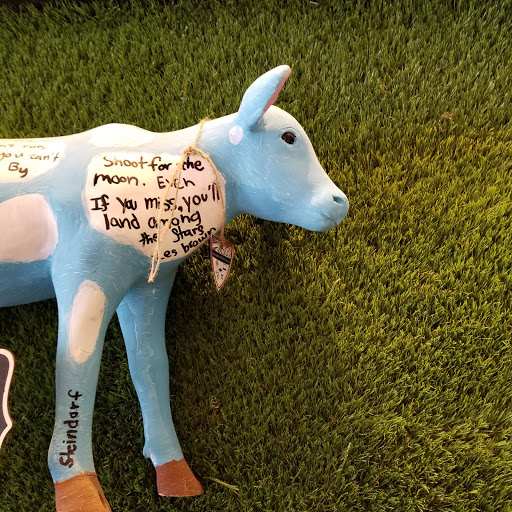 you can't
By
Shoot for the
moon. Even
If you miss, you'll
land among
the stars
es brown
Steindorf